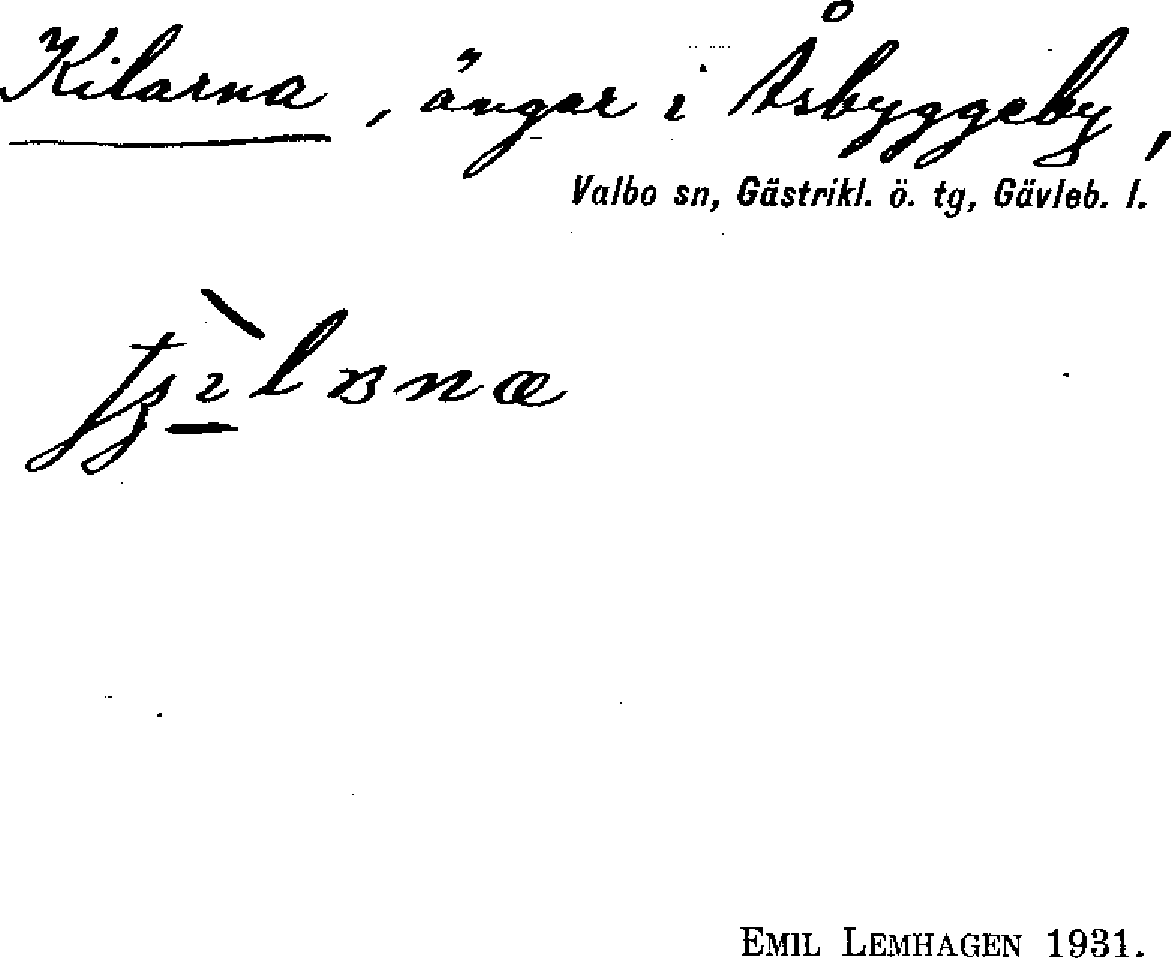 Kilarna, ängar i Åsbyggeby,
Valbo sn, Gästrikl. ö. tg, Gävleb. l.
EMIL LEMHAGEN 1931.